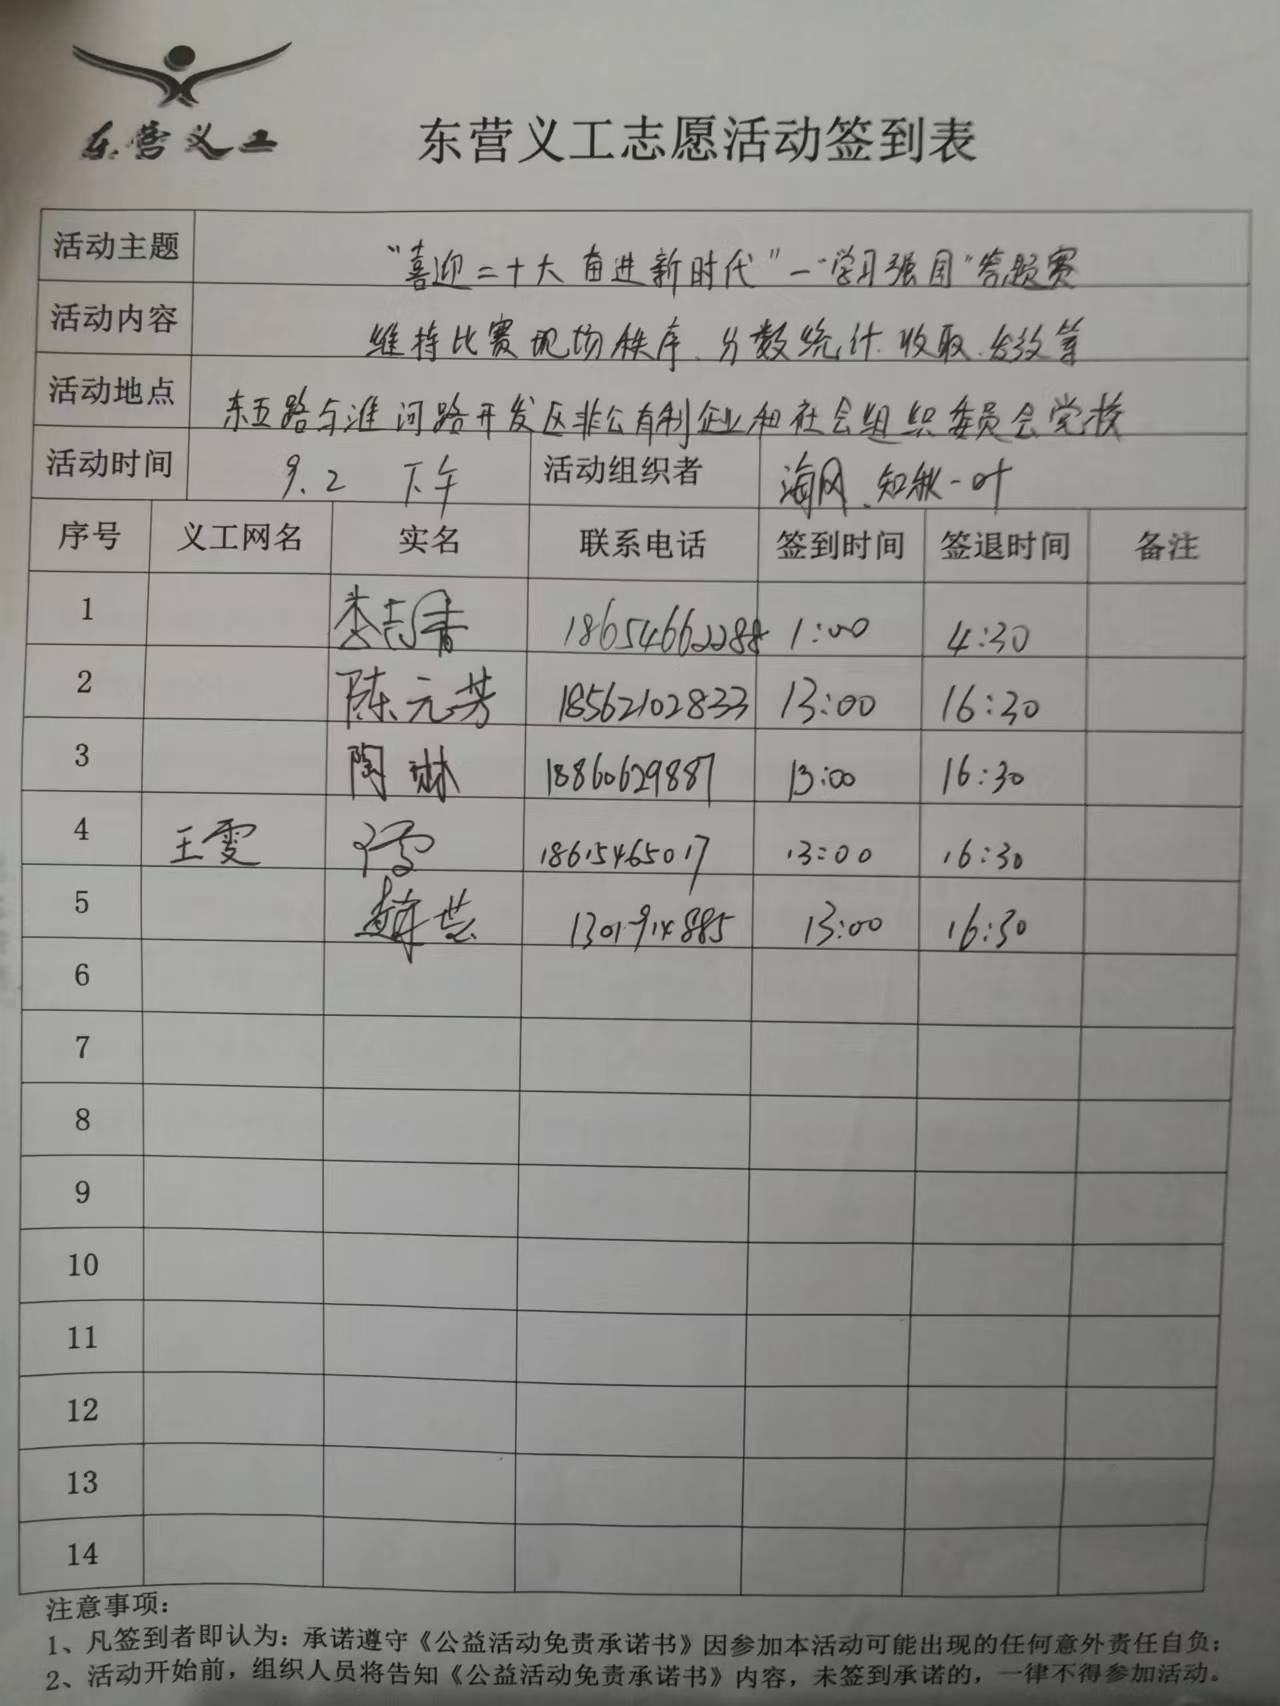 东营义工
东营义工志愿活动签到表
活动主题 “喜迎二十大 奋进新时代”—“学习强国”答题赛
活动内容 维持比赛现场秩序、分数统计、收取、发放等
活动地点 东五路与淮河路开发区非公有制企业和社会组织委员会党校
活动时间 9.2 下午 活动组织者 海风、知秋一叶
序号 义工网名 实名 联系电话 签到时间 签退时间 备注
1 18654662288 1:00 4:30
2 陈元芳 18562102833 13:00 16:30
3 陶琳 18860629887 13:00 16:30
4 王雯 18615465017 13:00 16:30
5 13:00 16:30
6
7
8
9
10
11
12
13
14
注意事项：
1、凡签到者即认为：承诺遵守《公益活动免责承诺书》因参加本活动可能出现的任何意外责任自负；
2、活动开始前，组织人员将告知《公益活动免责承诺书》内容，未签到承诺的，一律不得参加活动。